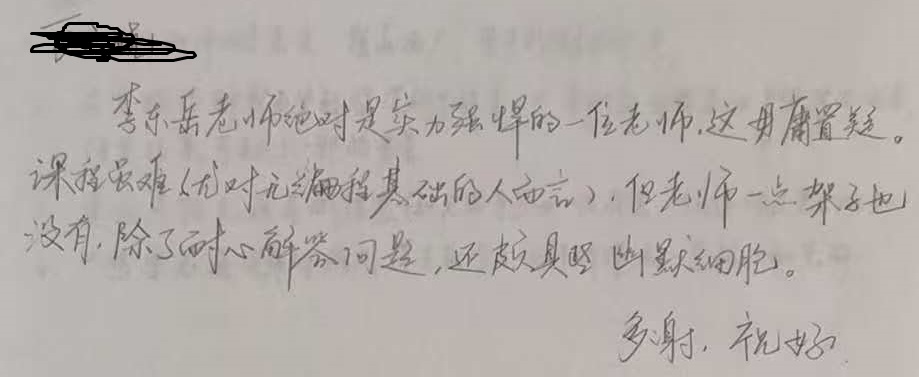 李东岳老师绝对是实力强悍的一位老师,这毋庸置疑。
课程虽难(尤对无编程基础的人而言),但老师一点架子也
没有,除了耐心解答问题,还颇具 幽默细胞。
多谢,祝好